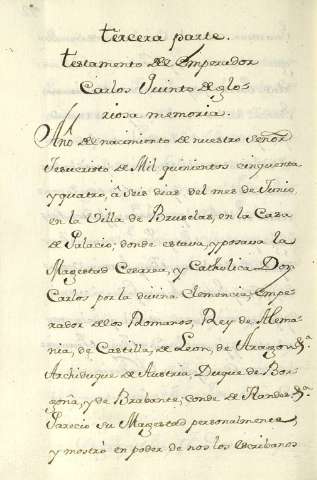 tercera parte.
testamento del Emperador
Carlos Quinto de glo-
riosa memoria.
Año de nacimiento de nuestro Señor
Jesucristo de Mil quinientos cinquenta
y quatro, á seis dias del mes de Junio
en la Villa de Bruselas, en la Casa
de Palacio, donde estava, y posava la
Magestad Cesarea, y Catholica Don
Carlos por la divina Clemencia; Empe-
rador de los Romanos, Rey de Alema-
nia, de Castilla, de Leon, de Aragon &ª
Archiduque de Austria, Duque de Bor-
goña, y de Brabante; Conde de Flandes &ª
Parecio su Magestad personalmente,
y mostró en poder de nos los escribanos